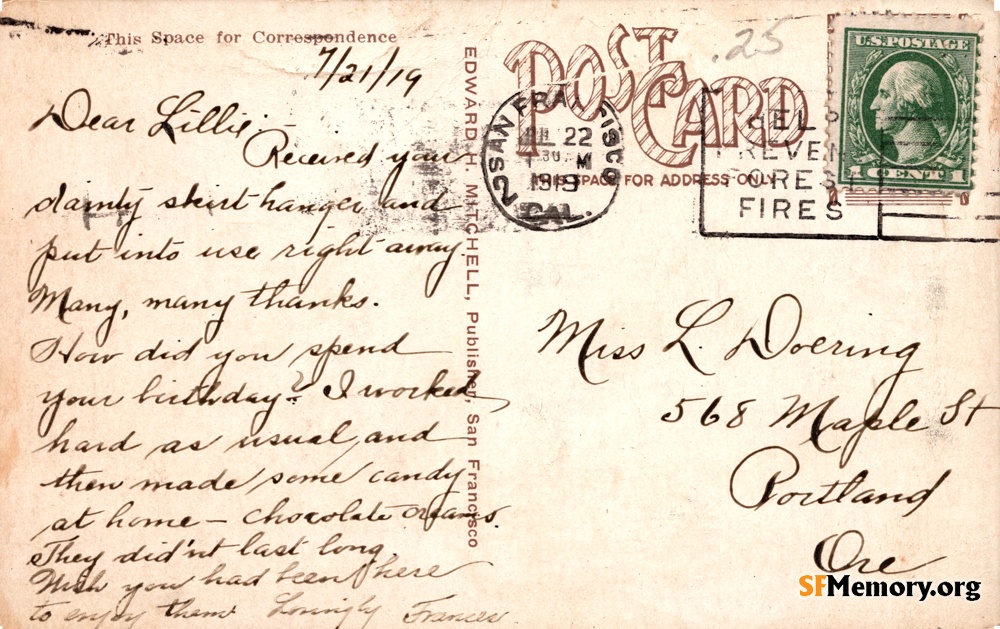 This Space for Correspondence
7/21/19
Dear Lillie:-
Received your
dainty skirt hanger and
put into use right away.
Many, many thanks.
How did you spend
your birthday? I worked
hard as usual, and
then made some candy
at home - chocolate creams.
They did'nt last long.
Wish you had been here
to enjoy them Lovingly Frances
EDWARD H. MITCHELL, Publisher, San Francisco
POST CARD
THIS SPACE FOR ADDRESS ONLY
.25
2 SAN FRANCISCO
JUL 22
30 M
1919
CAL.
HELP
PREVENT
FOREST
FIRES
U.S. POSTAGE
1 CENT 1
Miss L. Doering
568 Maple St
Portland
Ore
SFMemory.org